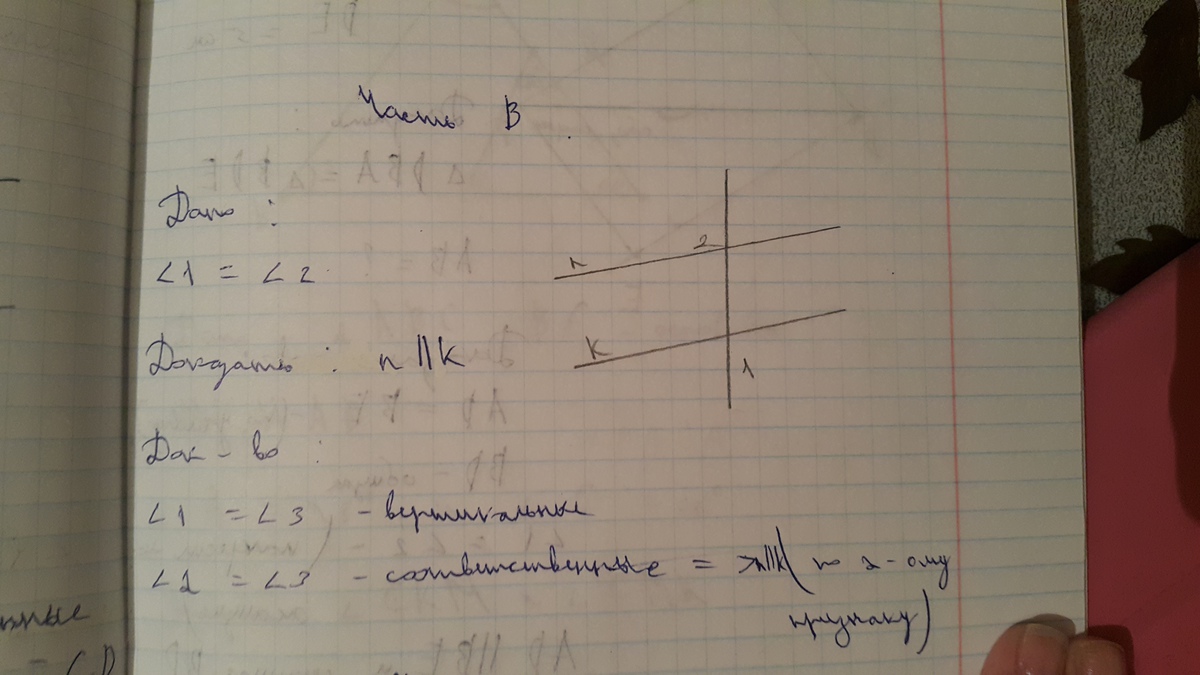 Часть В
Дано :
∠1 = ∠2
Доказать : n || K
Док - во :
∠1 = ∠3 - вертикальные
∠2 = ∠3 - соответственные => n||K ( по 2-ому
признаку)
2
n
K
1